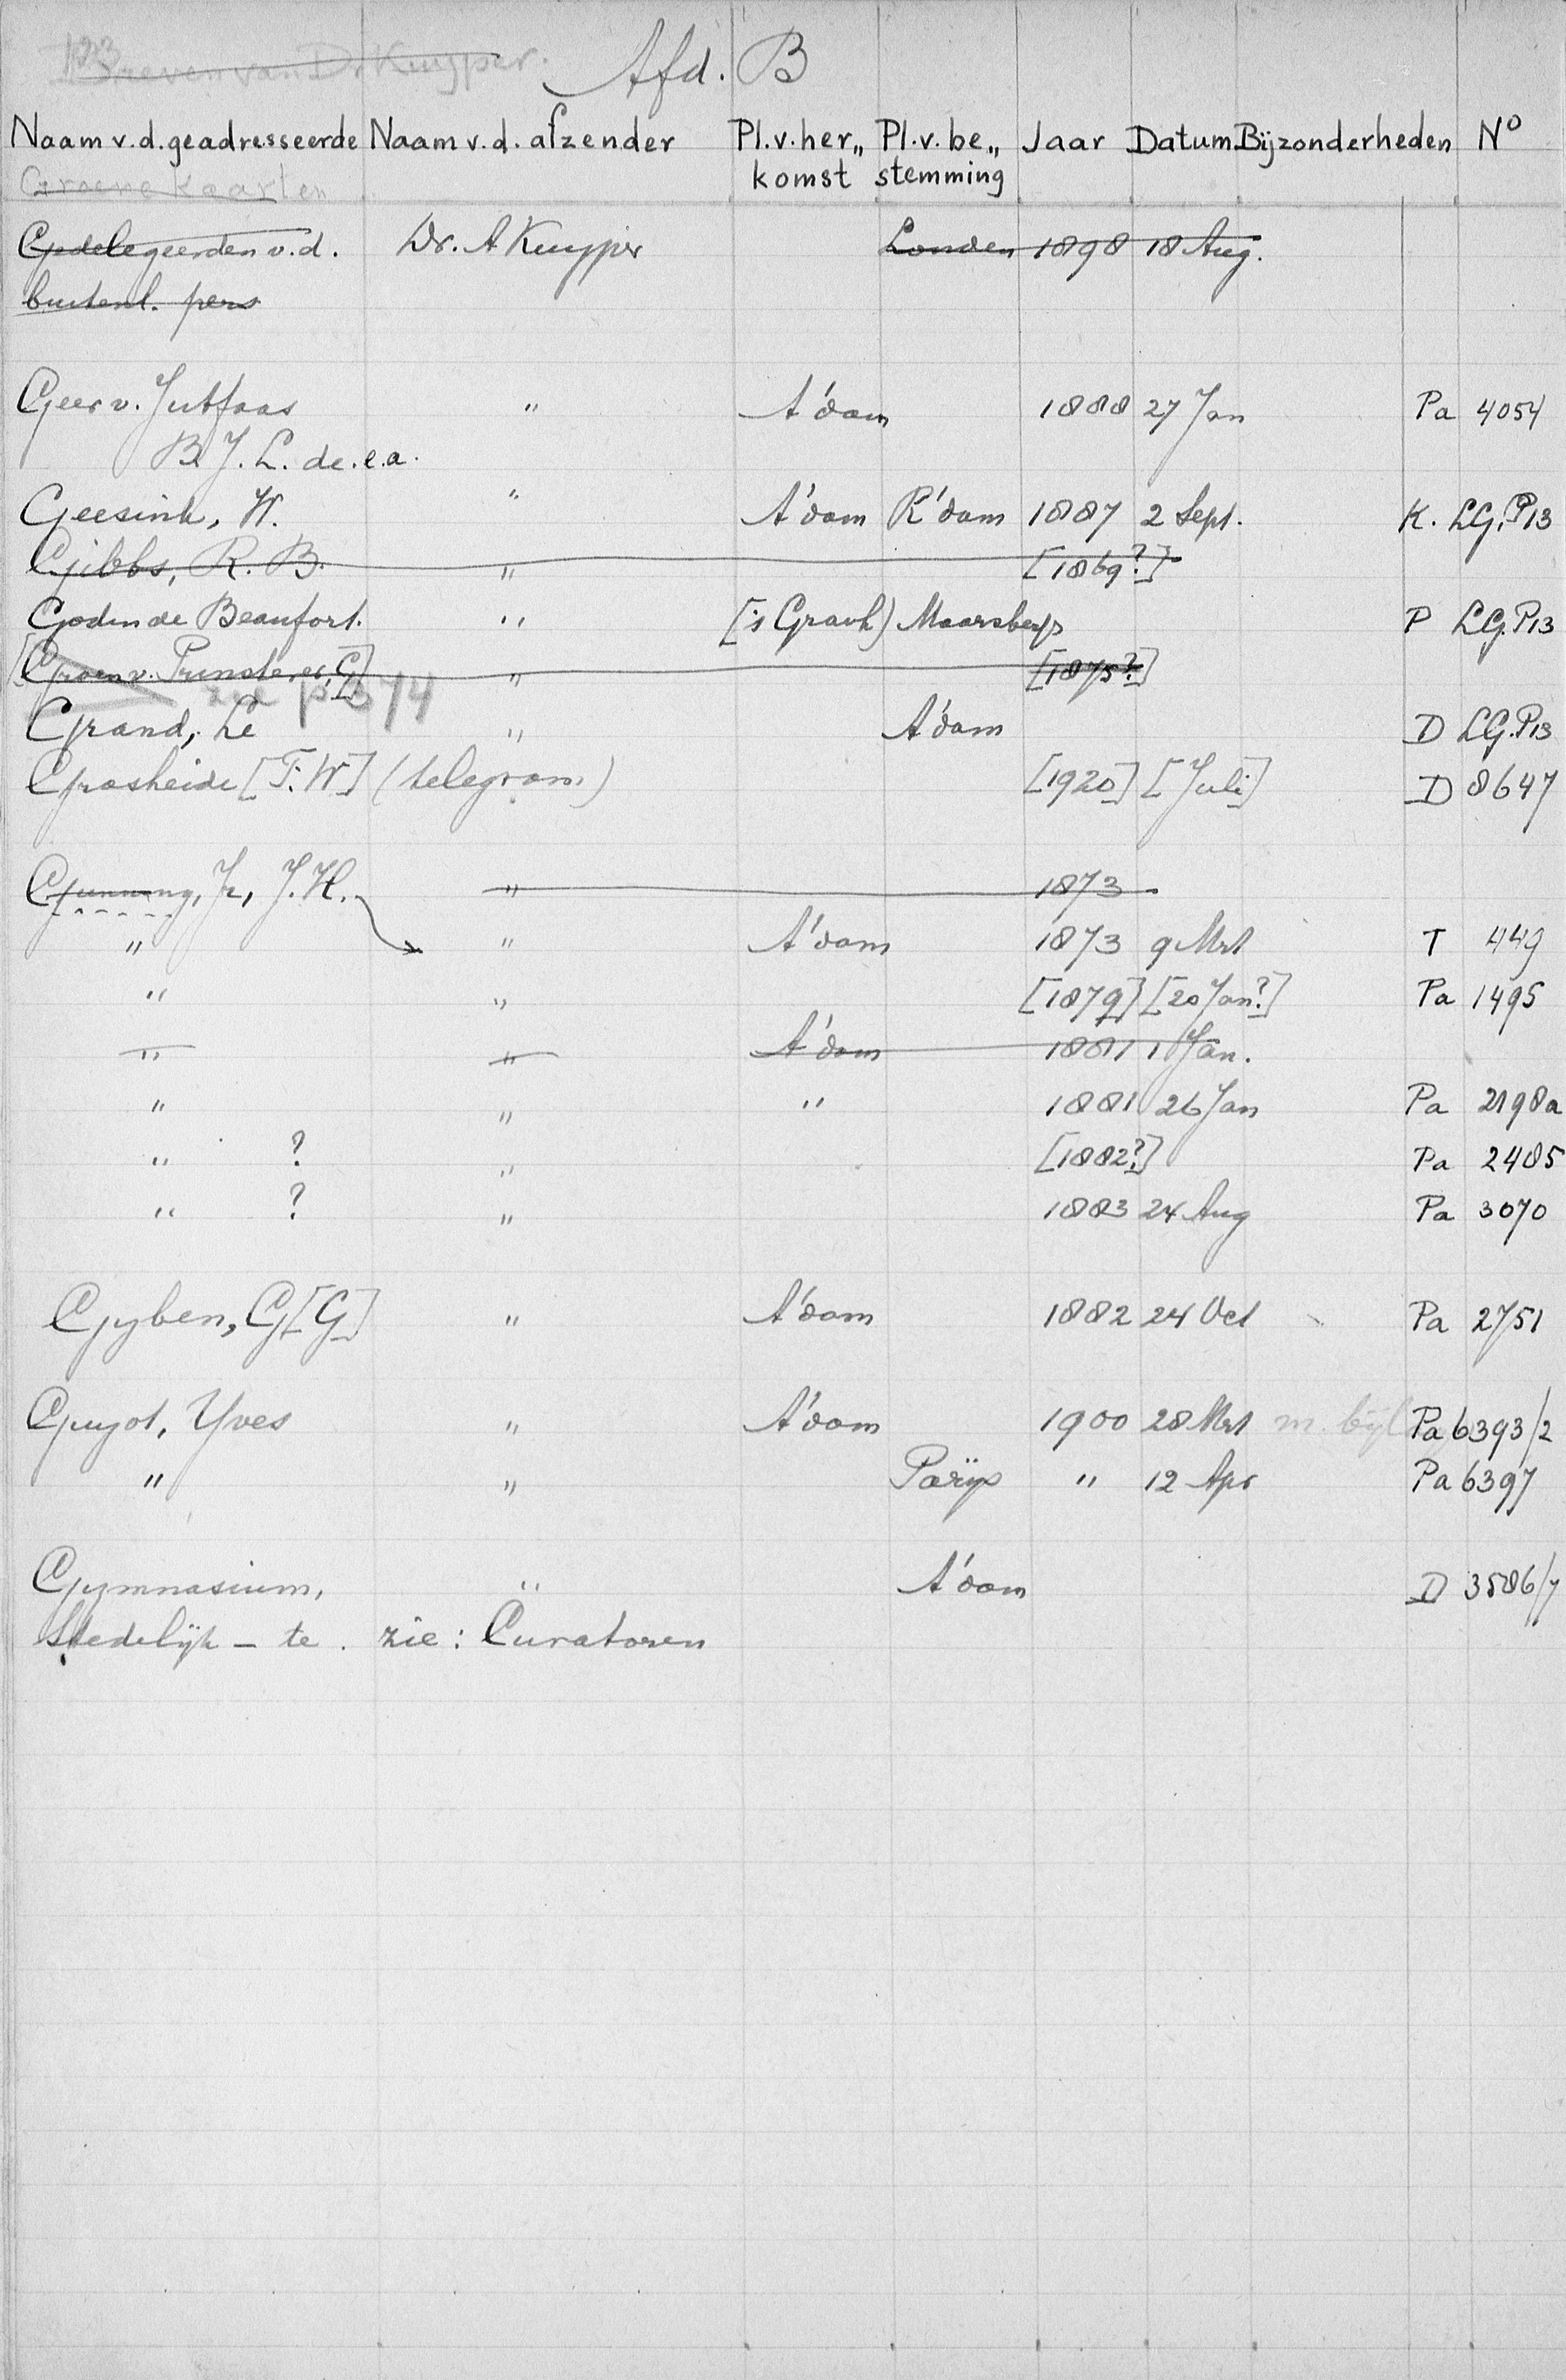 123
Brieven van Dr Kuyper. Afd. B
Naam v.d. geadresseerde Naam v.d. afzender Pl.v.her„ Pl.v.be„ Jaar Datum Bijzonderheden No
komst stemming
Groene Kaarten
Gedelegeerden v.d. Dr. A Kuyper Londen 1898 18 Aug.
buitenl. pers
Geer v. Jutfaas " A'dam 1888 27 Jan Pa 4054
B.J.L. de. e.a.
Geesink, W. " A'dam R'dam 1887 2 Sept. K. LG.P13
Gibbs, R.B. " [1869?]
Godin de Beaufort. " ['s Gravh) Maarsbergs P LG.P13
[Groen v. Prinsterer, G] " [1875?]
zie p 374
Grand, Le " A'dam D LG.P13
Grosheide [F.W] (telegram) [1920] [Juli] D 8647
Gunning, Jr, J.H. " 1873
" " A'dam 1873 9 Mrt T 449
" " [1879] [20 Jan?] Pa 1495
" " A'dam 1881 1 Jan.
" " " 1881 26 Jan Pa 2198a
" ? " [1882?] Pa 2485
" ? " 1883 24 Aug Pa 3070
Gyben, G[G] " A'dam 1882 24 Oct Pa 2751
Guyot, Yves " A'dam 1900 28 Mrt m. bijl Pa 6393/2
" " Parijs " 12 Apr Pa 6397
Gymnasium, " A'dam D 3586/7
Stedelijk - te. zie: Curatoren